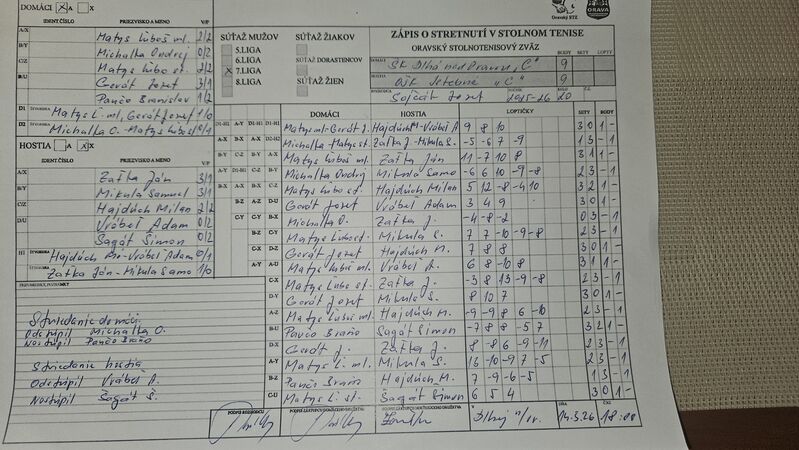 DOMÁCI X A X
IDENT.ČÍSLO PRIEZVISKO A MENO V/P
A/X Matys Ľuboš ml. 2/2
B/Y Michalka Ondrej 0/2
C/Z Matys Ľubo st. 2/2
D/U Gerát Jozef 3/1
Pančo Branislav 1/2
D1 Matys Ľ. ml., Gerát Jozef 1/0
D2 Michalka O. - Matys Ľubos 0/1
HOSTIA A X
IDENT.ČÍSLO PRIEZVISKO A MENO V/P
A/X Zaťka Ján 3/1
B/Y Mikula Samuel 3/1
C/Z Hajdúch Milan 2/2
D/U Vrábel Adam 0/2
Šagát Šimon 0/2
H1 Hajdúch - Vrábel Adam 0/1
Zaťka Ján - Mikula Samo 1/0
Striedanie domáci
Odstúpil Michalka O.
Nastúpil Pančo Braňo
Striedanie hostia
Odstúpil Vrábel A.
Nastúpil Šagát Š.
SÚŤAŽ MUŽOV
5.LIGA
6.LIGA
X 7.LIGA
8.LIGA
SÚŤAŽ ŽIAKOV
SÚŤAŽ DORASTENCOV
SÚŤAŽ ŽIEN
Oravský STZ
ORAVA
ZÁPIS O STRETNUTÍ V STOLNOM TENISE
ORAVSKÝ STOLNOTENISOVÝ ZVÄZ
BODY SETY LOPTY
DOMÁCI ŠK Dlhá nad Oravou "C" 9
HOSTIA "C" 9
Jozef 2025-26 20
DOMÁCI HOSTIA LOPTIČKY SETY BODY
Matys ml-Gerát J. Hajdúch M-Vrábel A 9 8 10 3 0 1 -
Michalka-Matys st. Zaťka J.-Mikula S. -5 -6 7 -9 1 3 - 1
Matys Ľuboš ml. Zaťka Ján 11 -7 10 8 3 1 1 -
Michalka Ondrej Mikula Samo -6 6 10 -9 -8 2 3 - 1
Matys Ľubo st. Hajdúch Milan 5 12 -8 -4 10 3 2 1 -
B-Z D-U Gerát Jozef Vrábel Adam 3 4 9 3 0 1 -
C-Y B-X Michalka O. Zaťka J. -4 -8 -2 0 3 - 1
B-Z C-Y Matys Ľubo st. Mikula S. 7 7 -10 -9 -8 2 3 - 1
C-X D-Z Gerát Jozef Hajdúch M. 7 8 8 3 0 1 -
A-Y A-U Matys Ľuboš ml. Vrábel A. 6 8 -10 8 3 1 1 -
C-X Matys Ľubo st. Zaťka J. -3 8 13 -9 -8 2 3 - 1
D-Y Gerát Jozef Mikula S. 8 10 7 3 0 1 -
A-Z Matys Ľuboš ml. Hajdúch M. -9 -9 8 6 -10 2 3 - 1
B-U Pančo Braňo Šagát Šimon -7 8 8 -5 7 3 2 1 -
D-X Gerát J. Zaťka J. 8 -8 6 -9 -11 2 3 - 1
A-Y Matys Ľ. ml. Mikula S. 13 -10 -9 7 -5 2 3 - 1
B-Z Pančo Braňo Hajdúch M. 7 -9 -6 -5 1 3 - 1
C-U Matys Ľ. st. Šagát Šimon 6 5 4 3 0 1 -
V Dlhej n/Or. DŇA 14.3.26 ČAS 18:00